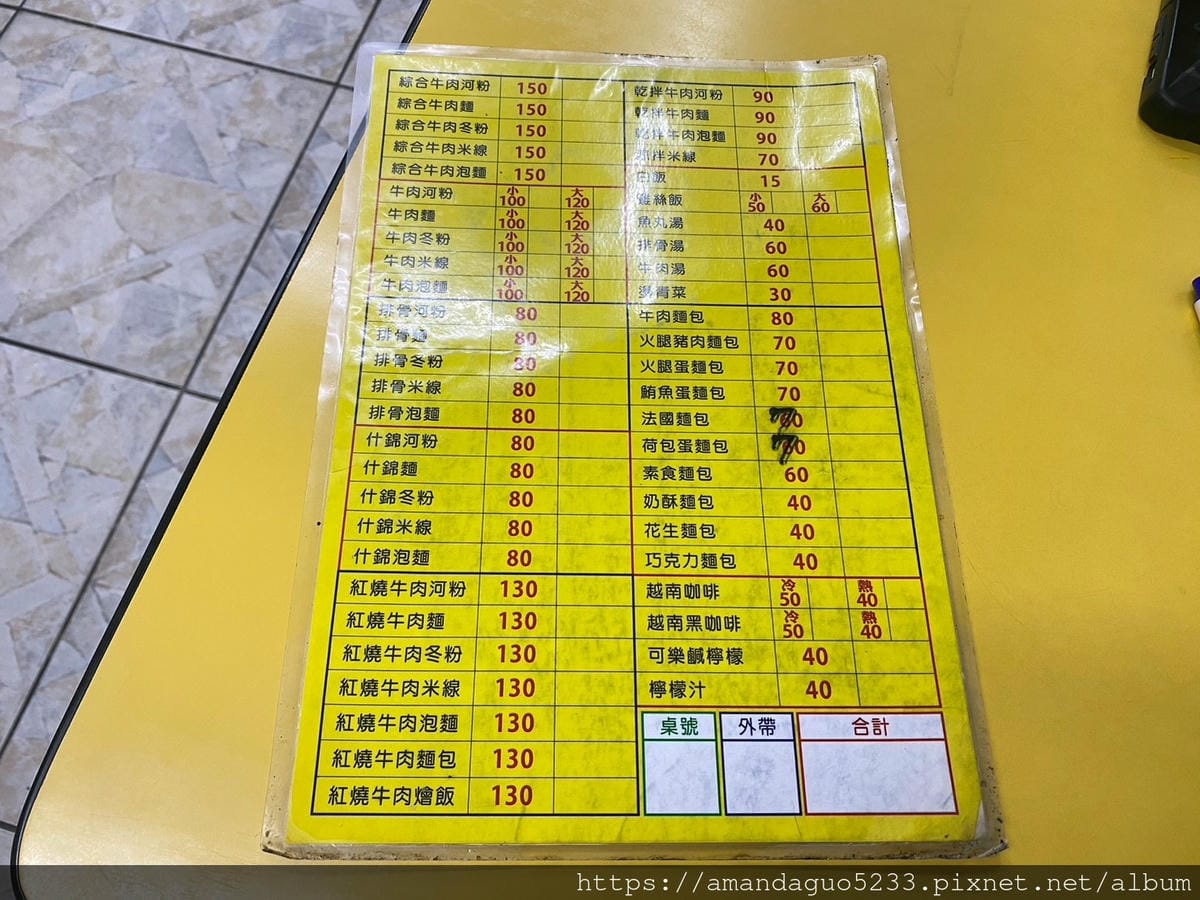 綜合牛肉河粉 150
綜合牛肉麵 150
綜合牛肉冬粉 150
綜合牛肉米線 150
綜合牛肉泡麵 150
牛肉河粉 小100 大120
牛肉麵 小100 大120
牛肉冬粉 小100 大120
牛肉米線 小100 大120
牛肉泡麵 小100 大120
排骨河粉 80
排骨麵 80
排骨冬粉 80
排骨米線 80
排骨泡麵 80
什錦河粉 80
什錦麵 80
什錦冬粉 80
什錦米線 80
什錦泡麵 80
紅燒牛肉河粉 130
紅燒牛肉麵 130
紅燒牛肉冬粉 130
紅燒牛肉米線 130
紅燒牛肉泡麵 130
紅燒牛肉麵包 130
紅燒牛肉燴飯 130
乾拌牛肉河粉 90
乾拌牛肉麵 90
乾拌牛肉泡麵 90
拌米線 70
白飯 15
雞絲飯 小50 大60
魚丸湯 40
排骨湯 60
牛肉湯 60
燙青菜 30
牛肉麵包 80
火腿豬肉麵包 70
火腿蛋麵包 70
鮪魚蛋麵包 70
法國麵包
荷包蛋麵包
素食麵包 60
奶酥麵包 40
花生麵包 40
巧克力麵包 40
越南咖啡 冷50 熱40
越南黑咖啡 冷50 熱40
可樂鹹檸檬 40
檸檬汁 40
桌號 外帶 合計
https://amandaguo5233.pixnet.net/album